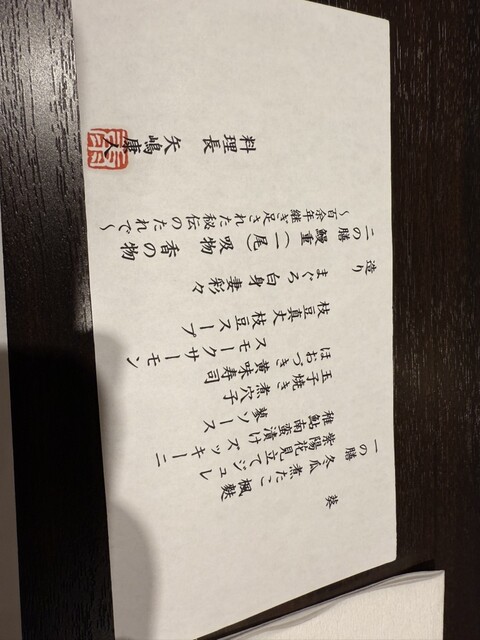 葵
一の膳
冬瓜 煮たこ 楓麩
紫陽花見立てジュレ
稚鮎南蛮漬け ズッキーニ
蓼ソース
玉子焼き 煮穴子
ほおづき黄味寿司
スモークサーモン
枝豆真丈
枝豆スープ
造り
まぐろ 白身 妻彩々
二の膳
鰻重(一尾) 吸物 香の物
~百余年継ぎ足された秘伝のたれで~
料理長 矢嶋康人